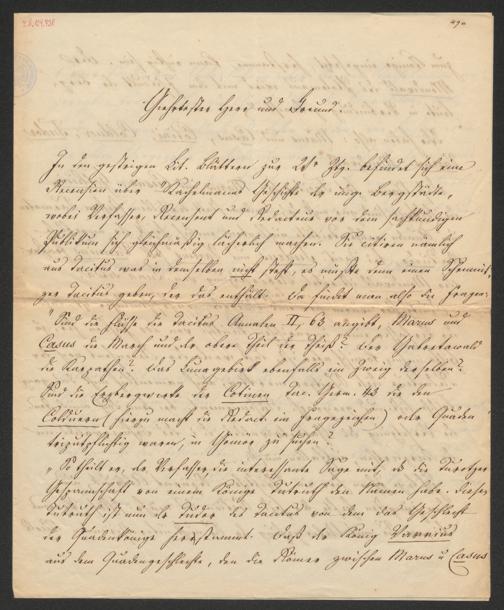 Geehrtester Herr und Freund.
In den gestrigen Lit. Blättern zur Ztg. befindet sich eine
Recension über "Kachelmanns Geschichte der ung. Bergstädte,
wobei Verfasser, Recensent und Redacteur vor dem sachkundigen
Publikum sich gleichmäßig lächerlich machen. Sie citiren nämlich
aus Tacitus was in demselben nicht steht, es müßte denn einen Schemnit-
zer Tacitus geben, der das enthält. Da findet man also die Fragen:
"Sind die Flüsse die Tacitus Annalen II, 63 angibt, Marus und
Casus die March und der obere Theil der Theiß? Der Gabretawald
die Karpathen? Das Lunagebirt ebenfalls ein Zweig derselben?
Sind die Erzbergwerke der Cotinen Tac. Germ. 43 die den
Colduern (hierzu macht die Redact. ein Fragezeichen) oder Quaden
tributpflichtig waren, in Gömör zu suchen?
"So theilt er, der Verfasser die interessante Sage mit, daß die Turotzer
Gespannschaft von einem Könige Tuteuth den Namen habe. Dieser
Tuteuth ist nun der Tuder des Tacitus von dem das Geschlecht
der Quadenkönige herstammt. Daß der König Vannius
aus dem Quadengeschlechte, den die Römer zwischen Marus u Casus